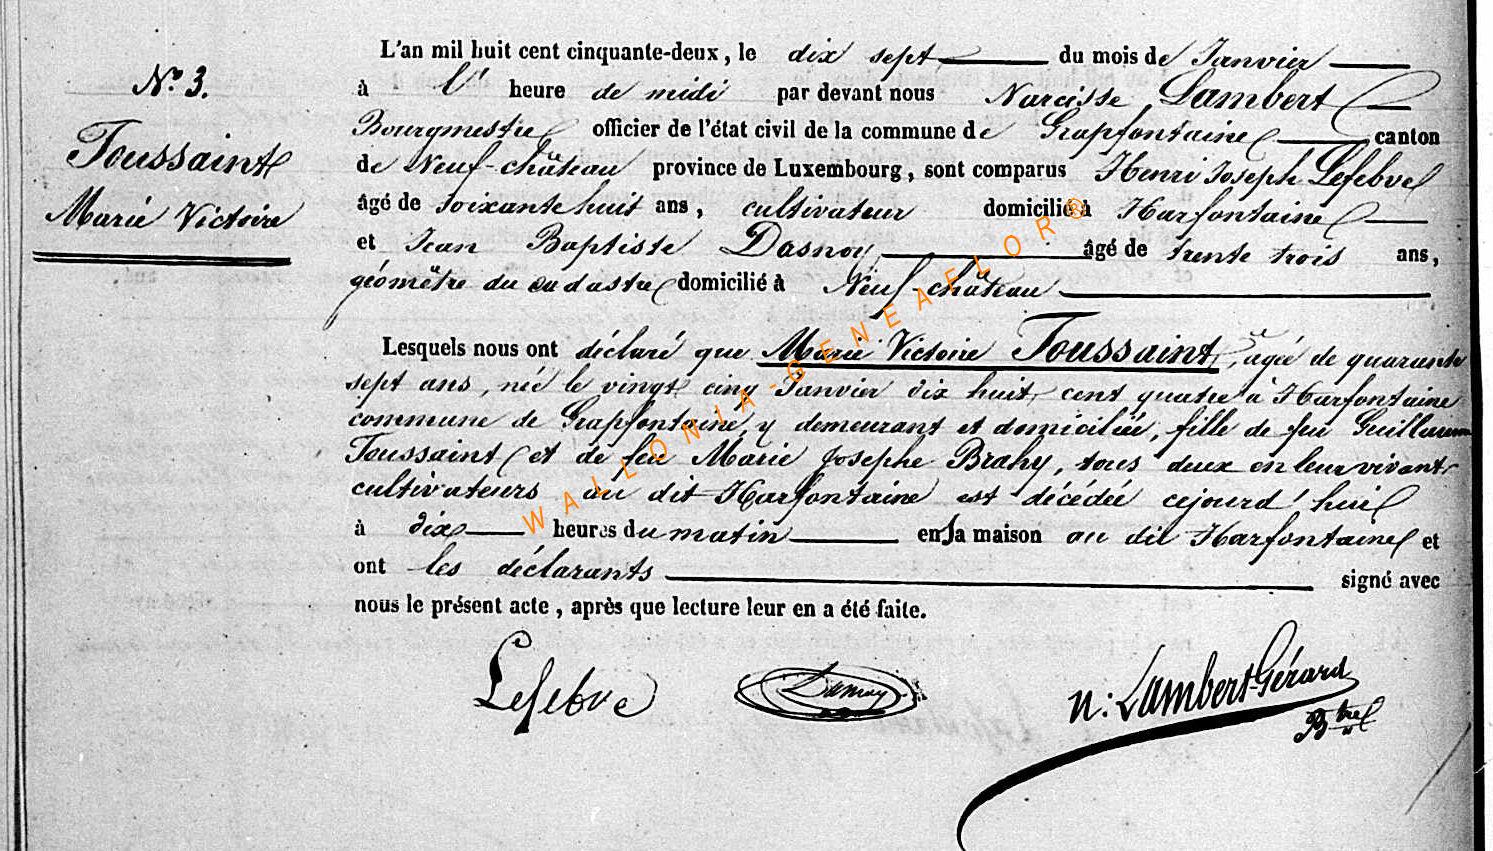 N° 3.
Toussaint
Marie Victoire
L'an mil huit cent cinquante-deux, le dix sept du mois de Janvier
à l' heure de midi par devant nous Narcisse Lambert
Bourgmestre officier de l'état civil de la commune de Grapfontaine canton
de Neuf-château province de Luxembourg, sont comparus Henri Joseph Lefebve
âgé de soixante huit ans, cultivateur domicilié à Harfontaine
et Jean Baptiste Dasnoy âgé de trente trois ans,
géomètre du cadastre domicilié à Neuf-château
Lesquels nous ont déclaré que Marie Victoire Toussaint, agée de quarante
sept ans, née le vingt cinq Janvier dix huit cent quatre à Harfontaine
commune de Grapfontaine, y demeurant et domiciliée, fille de feu Guillaume
Toussaint et de feu Marie Josephe Brahy, tous deux en leur vivant
cultivateurs au dit Harfontaine est décédée cejourd'hui
à dix heures du matin en sa maison au dit Harfontaine et
ont les déclarants signé avec
nous le présent acte, après que lecture leur en a été faite.
Lefebve Dasnoy N: Lambert-Gérard
Btre
WALLONIA-GENEAFLOR®